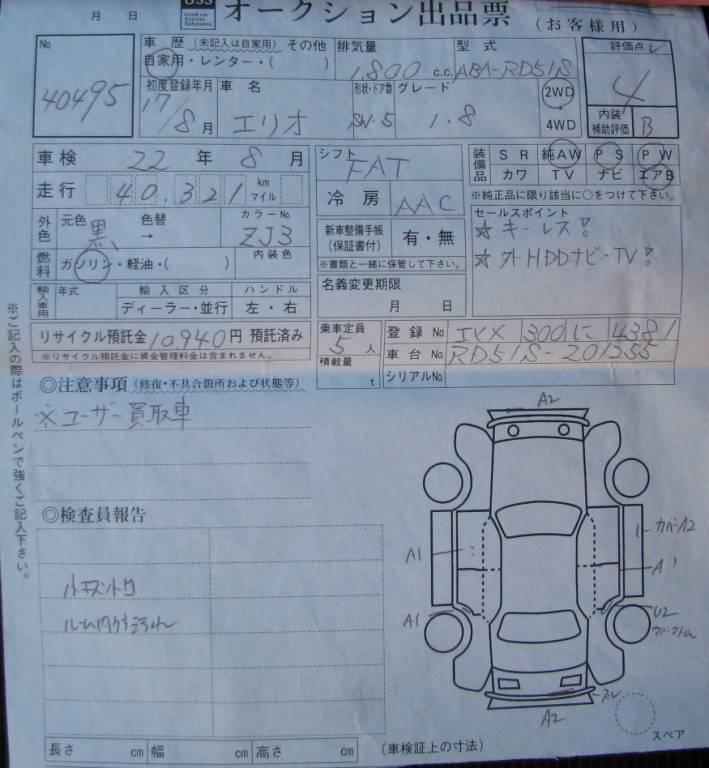 月 日 USS Used car System Solutions オークション出品票 (お客様用)
No. 40495
車歴 (未記入は自家用) その他 排気量 型式 評価点
自家用・レンター・( ) 1,800 c.c. ABA-RD51S 4
初度登録年月 車名 形状・ドア数 グレード 2WD
17/8月 エリオ SN・5 1.8 4WD 内装補助評価 B
車検 22年 8月 シフト FAT 装備品 SR 純AW PS PW
カワ TV ナビ エアB
走行 40,321 km マイル 冷房 AAC ※純正品に限り該当に○をつけて下さい。
外色 元色 黒 色替 → カラーNo. ZJ3 新車整備手帳 (保証書付) 有・無 セールスポイント
☆キーレス!
☆外HDDナビ-TV!
燃料 ガソリン・軽油・( ) 内装色 ※書類と一緒に保管して下さい。
輸入車用 年式 輸入区分 ハンドル 名義変更期限
ディーラー・並行 左・右 月 日
リサイクル預託金 10,940円 預託済み 乗車定員 5人 登録No 300 に 4381
※リサイクル預託金に資金管理料金は含まれません。 積載量 t 車台No RD51S-201255
シリアルNo
◎注意事項 (修復・不具合箇所および状態等)
※ユーザー買取車
※ご記入の際はボールペンで強くご記入下さい。
◎検査員報告
A2
カバーA2
A1
A1
A1
U2
A2
スレ
スペア
長さ cm 幅 cm 高さ cm (車検証上の寸法)